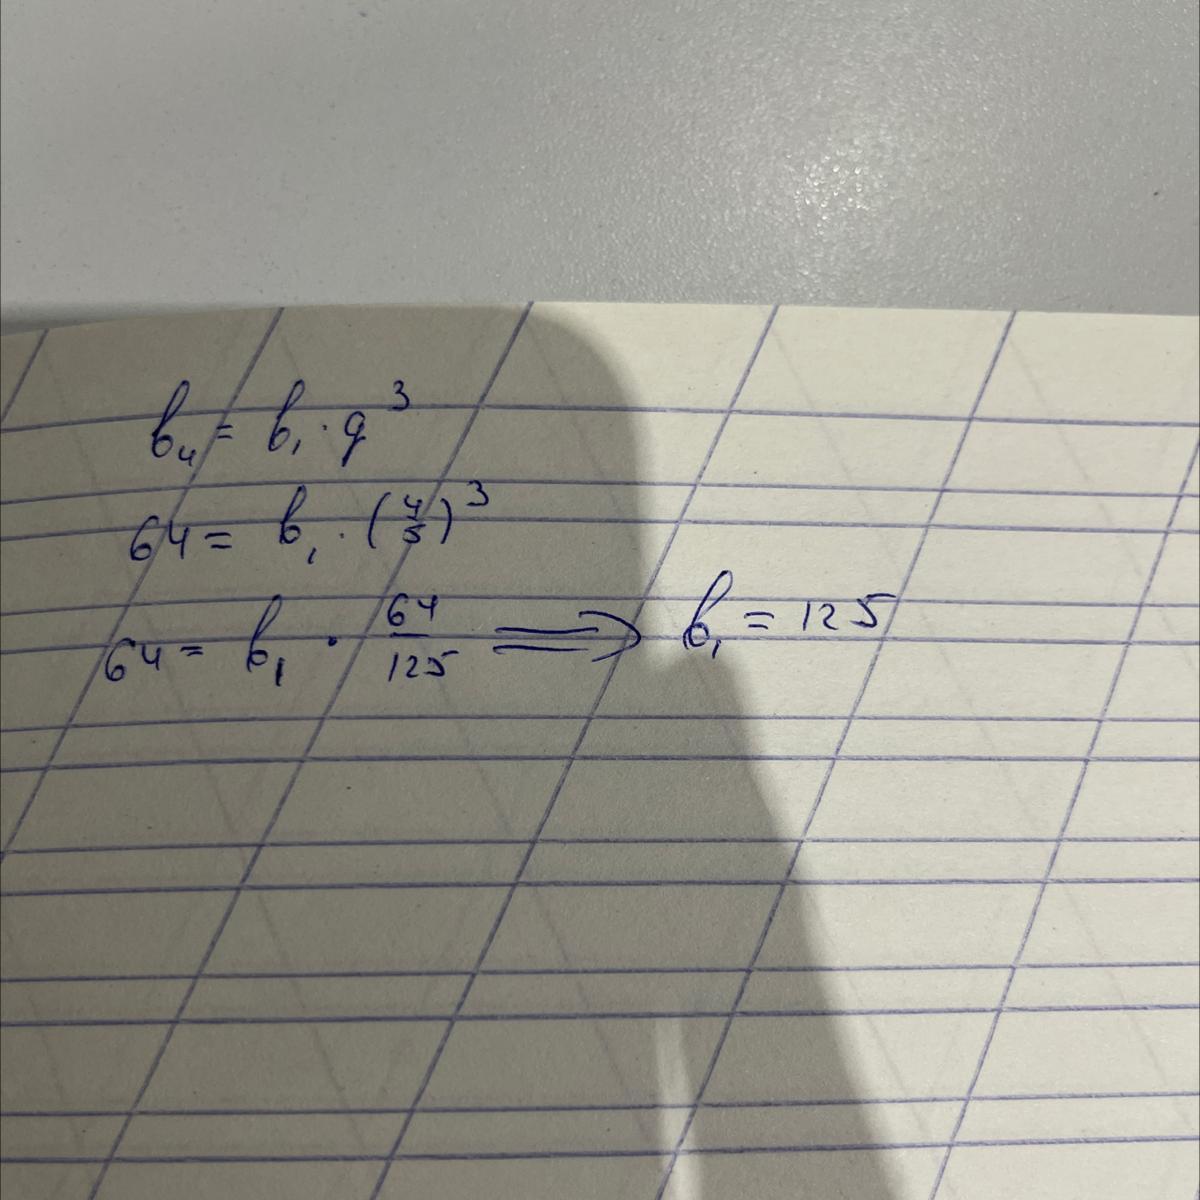 b₄ = b₁ · q³
64 = b₁ · (4/5)³
64 = b₁ · 64/125 ⟹ b₁ = 125